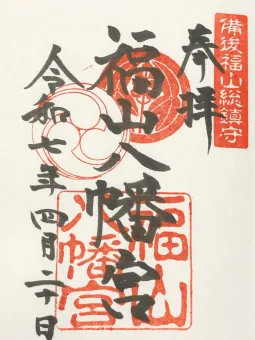 備後福山総鎮守
奉拝
福山八幡宮
福山八幡宮
令和七年四月二十日